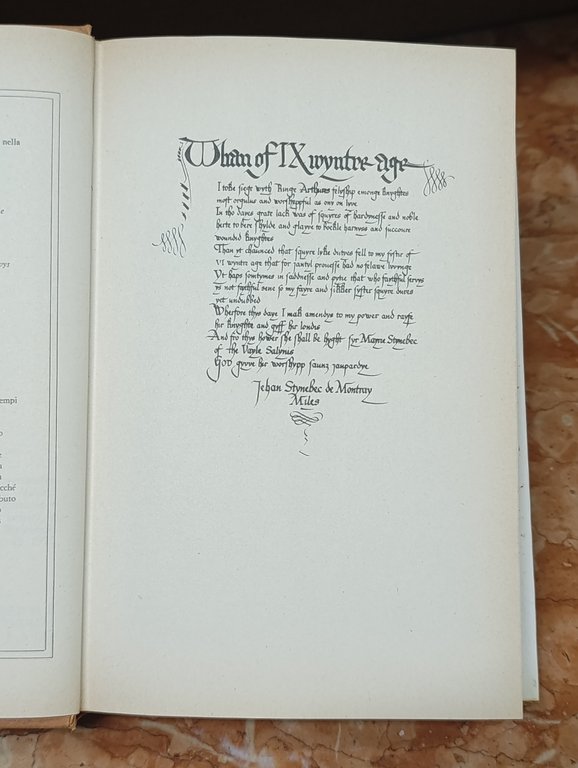 nella
e
oys
empi
o
e
a
a
cché
buto
o
i
Whan of IX wyntre age
I toke siege wyth Kinge Arthurs felyship emonge knyghtes
most orgulus and worshyppful as ony on lyve
In tho dayes grate lack was of squyres of hardynesse and noble
herte to bere shylde and glayve to bockle harnyss and succoure
wounded knyghtes
Than yt chaunced that squyre lyke dutyes fell to my syster of
vi wyntre age that for jantyl prouesse had no felawe lyvynge
Yt haps somtymes in saddnesse and pytie that who faythful servys
ys not faythful sene so my fayre and sikker syster squyre dures
yet undubbed
Wherfore thys daye I mak amendys to my power and rayse
hir knyghte and gyff hir loudis
And fro thys hower she shall be hyght syr Mayne Stynebec
of the Vayle Salynis
God gyvve hir worshypp saunz jaupardye
Jehan Stynebec de Montray
Miles